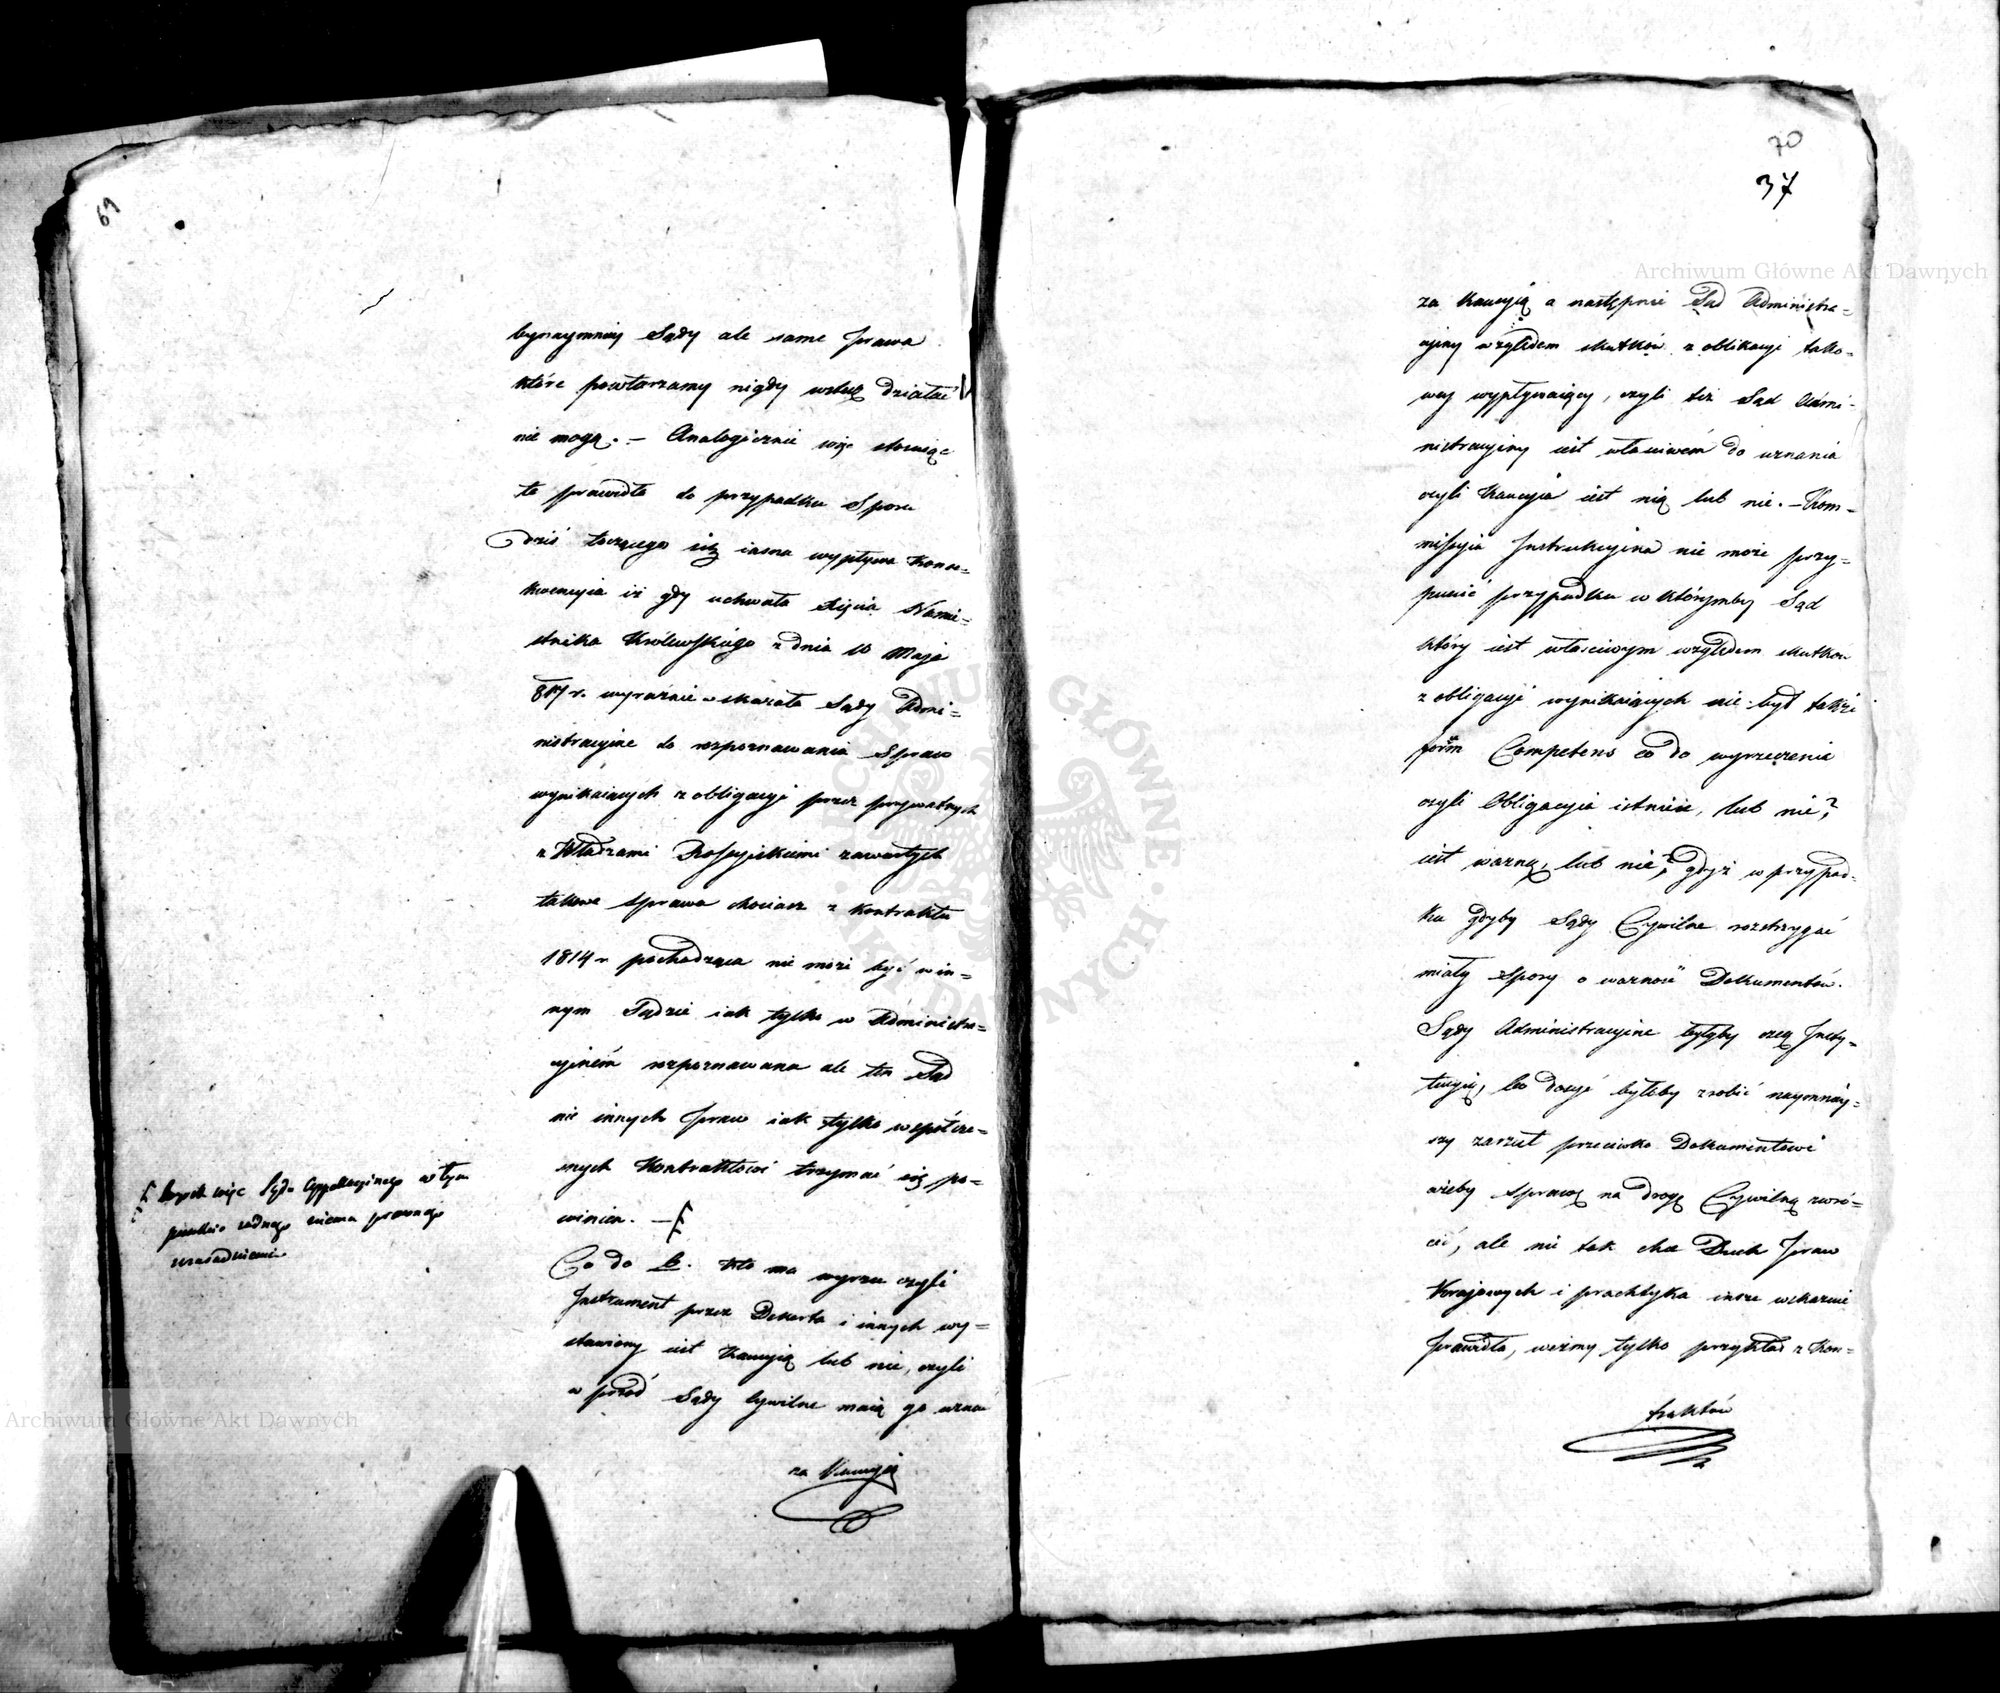 69
bynaymniey Sądy ale same Prawa
które powtarzamy nigdy wstecz działać
nie mogą. – Analogicznie więc stosuiąc
te prawidła do przypadku Sporu
dziś toczącego się iasna wypływa Konse=
kwencyia iż gdy uchwała Xięcia Namie=
stnika Królewskiego z dnia 10 Maja
817 r. wyraźnie wskazała Sądy Admi=
nistracyine do rozpoznawania Spraw
wynikaiących z obligacyi przez prywatnych
z Władzami Rossyiskiemi zawartych
takowa sprawa chociasz z kontraktu
1814 r pochodząca nie może być w in=
nym Sądzie iak tylko w Administra=
cyiném rozpoznawana ale ten Sąd
nie innych Praw iak tylko wspólcze=
snych Kontraktowi trzymać się po=
winien. –
Co do b. kto ma wyrzec czyli
Instrument przez Dekerta i innych wy=
stawiony iest Kaucyią lub nie, czyli
w przód Sądy Cywilne maią go uznać
za Kaucyią
więc Sądu Appellacyinego w tym
punkcie żadnego niema prawnego
uzasadnienia
70
37
za Kaucyią a następnie Sąd Administra=
cyiny względem skutków z oblikacyi tako=
wey wypływaiący, czyli też Sąd Admi=
nistracyiny iest właściwém do uznania
czyli Kaucyia iest nią lub nie. – Kom=
missyia Instrukcyina nie może przy=
puścić przypadku w którymby Sąd
który iest właściwym względem skutków
z obligacyi wynikaiących nie był także
forum Competens co do wyrzeczenia
czyli Obligacyia istnieie, lub nie?
iest ważną, lub nie? gdyż w przypad=
ku gdyby Sądy Cywilne rozstrzygać
miały spory o ważność Dokumentów.
Sądy Administracyine byłyby czczą Insty=
tucyią, bo dosyć byłoby zrobić naymniey=
szy zarzut przeciwko Dokumentowi
ażeby sprawę na drogę Cywilną zwró=
cić, ale nie tak chce Duch Praw
Kraiowych i praktyka insze wskazuie
Prawidła, weźmy tylko przykład z Kon=
traktów
Archiwum Główne Akt Dawnych
Archiwum Główne Akt Dawnych
ARCHIWUM GŁÓWNE AKT DAWNYCH